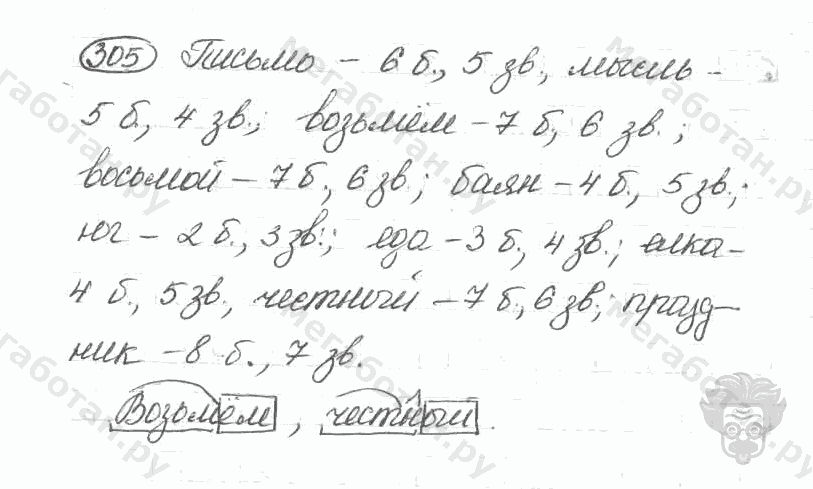 305 Письмо – 6 б., 5 зв., мысль –
5 б., 4 зв.; возьмём – 7 б, 6 зв.;
восьмой – 7 б., 6 зв.; баян – 4 б., 5 зв.;
юг – 2 б., 3 зв.; еда – 3 б, 4 зв.; ёлка –
4 б., 5 зв., честный – 7 б., 6 зв.; празд-
ник – 8 б., 7 зв.
Возьмём, честный.
Мегаботан.ру